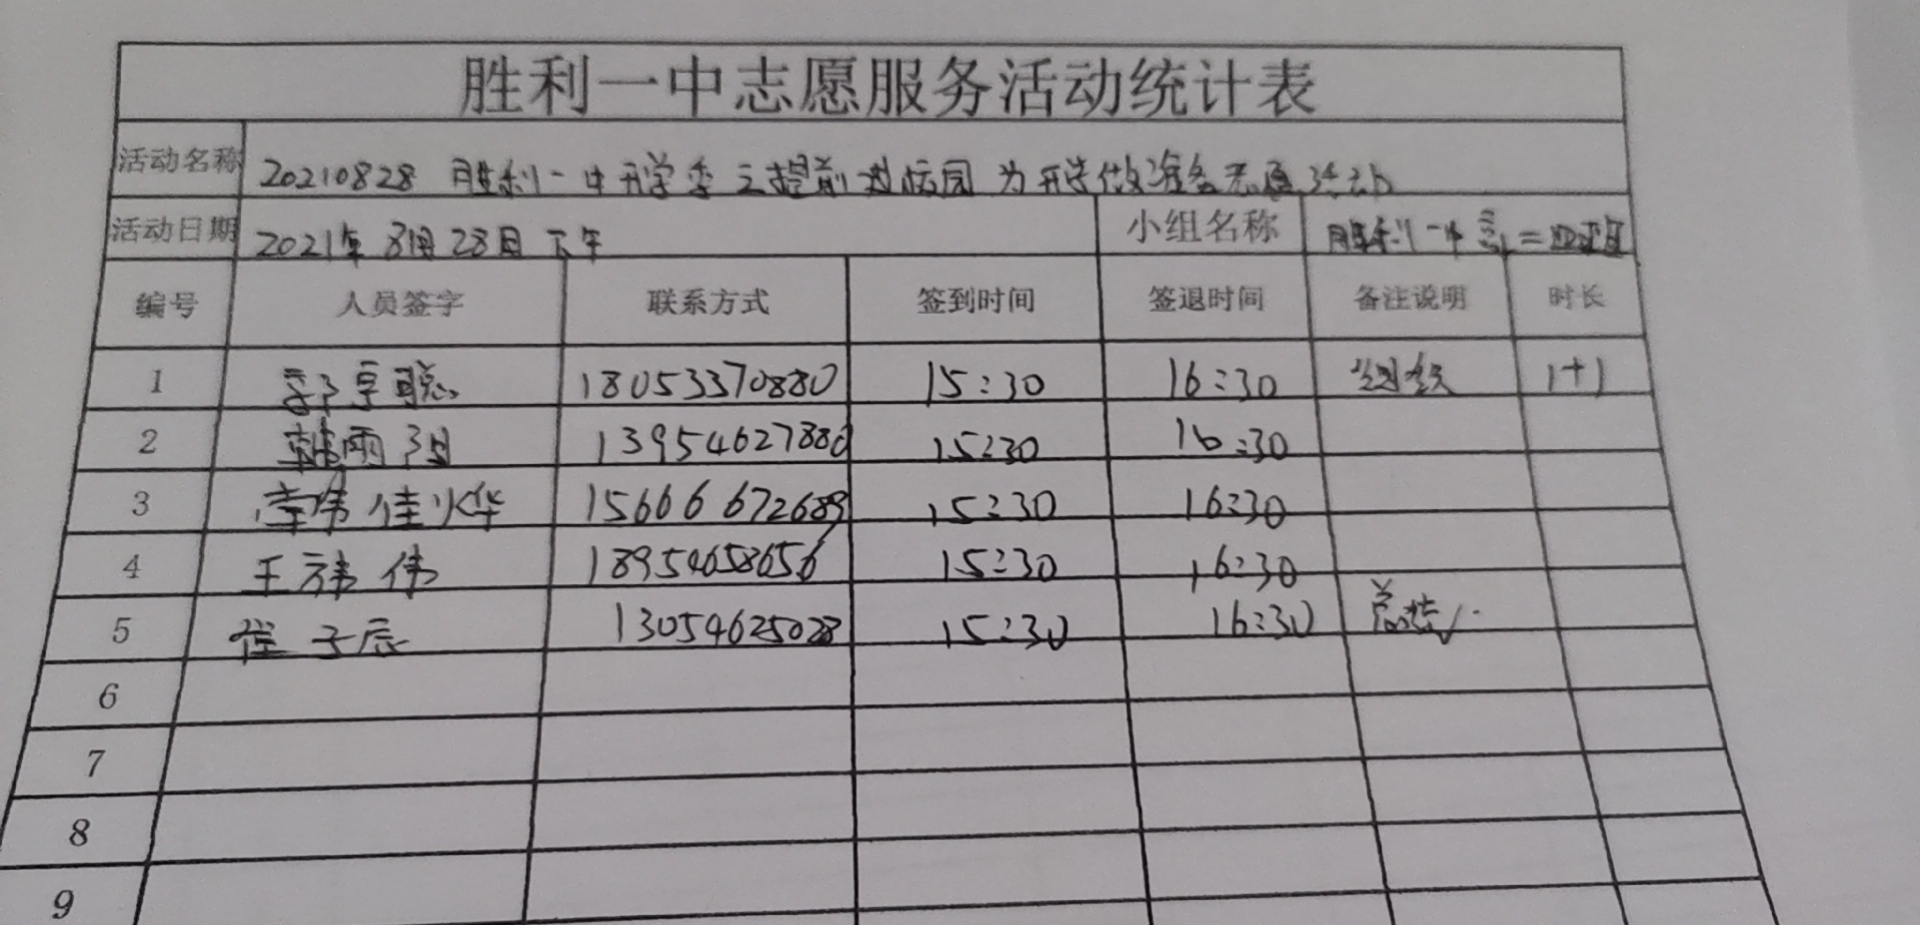 胜利一中志愿服务活动统计表
活动名称 20210828 胜利一中开学季之提前进校园 为开学做准备志愿活动
活动日期 2021年8月28日下午 小组名称 胜利一中 二四班
编号 人员签字 联系方式 签到时间 签退时间 备注说明 时长
1 卓聪 18053370880 15:30 16:30 组织 1+1
2 韩雨 13954627880 15:30 16:30
3 佳烨 15666672689 15:30 16:30
4 王祎伟 18954658656 15:30 16:30
5 崔子辰 13054625028 15:30 16:30 总结
6
7
8
9